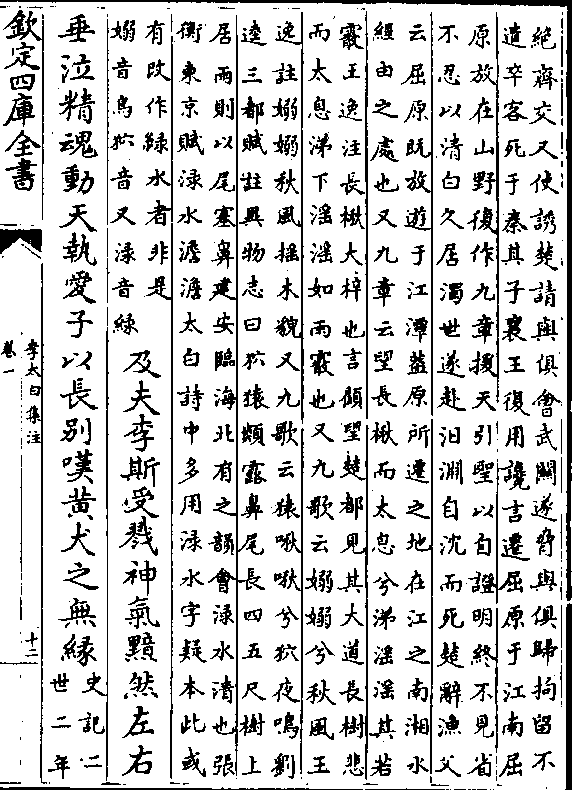 絶齊交又使誘楚請與俱㑹武關遂脅與俱歸拘留不
遣卒客死于秦其子襄王復用讒言遷屈原于江南屈
原放在山野復作九章援天引聖以自證明終不見省
不忍以清白久居濁世遂赴汨淵自沈而死楚辭漁父
云屈原既放遊于江潭蓋原所遷之地在江之南湘水
經由之處也又九章云望長楸而太息兮涕滛滛其若
霰王逸注長楸大梓也言顧望楚都見其大道長樹悲
而太息涕下滛滛如雨霰也又九歌云嫋嫋兮秋風王
逸註嫋嫋秋風揺木貌又九歌云猿啾啾兮狖夜鳴劉
逵三都賦註異物志曰狖猿類露鼻尾長四五尺樹上
居雨則以尾塞鼻建安臨海北有之韻會渌水清也張
衡東京賦渌水澹澹太白詩中多用渌水字疑本此或
有改作緑水者非是
嫋音鳥狖音又渌音緑
及夫李斯受戮神氣黯然左右
垂泣精魂動天執愛子以長别嘆黄犬之無縁
史記二
世二年
欽定四庫全書
李太白集注
卷一
十二